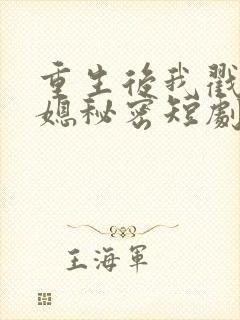 重生後我戳
媳秘密短劇
王海軍